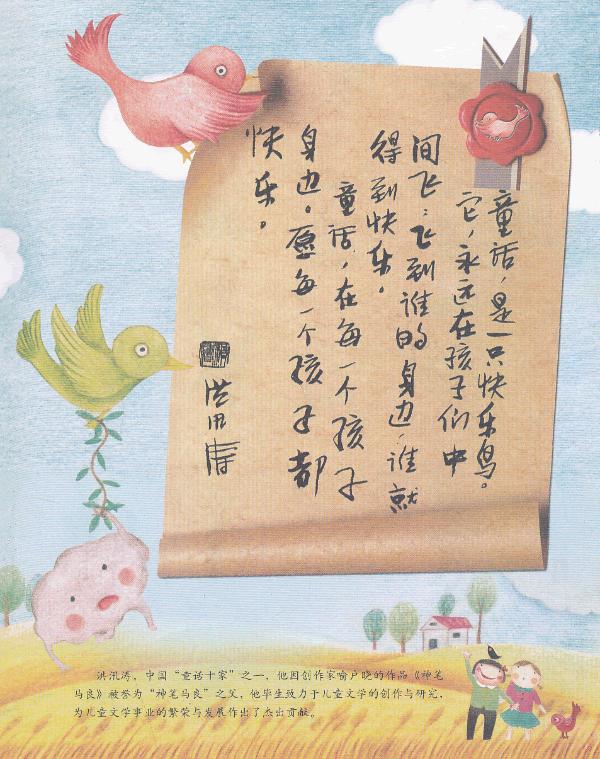 童话，是一只快乐鸟。
它，永远在孩子们中
间飞；飞到谁的身边，谁就
得到快乐。
童话，在每一个孩子
身边。愿每一个孩子都
快乐。
洪汛涛
洪汛涛，中国“童话十家”之一，他因创作家喻户晓的作品《神笔
马良》被誉为“神笔马良”之父，他毕生致力于儿童文学的创作与研究，
为儿童文学事业的繁荣与发展作出了杰出贡献。